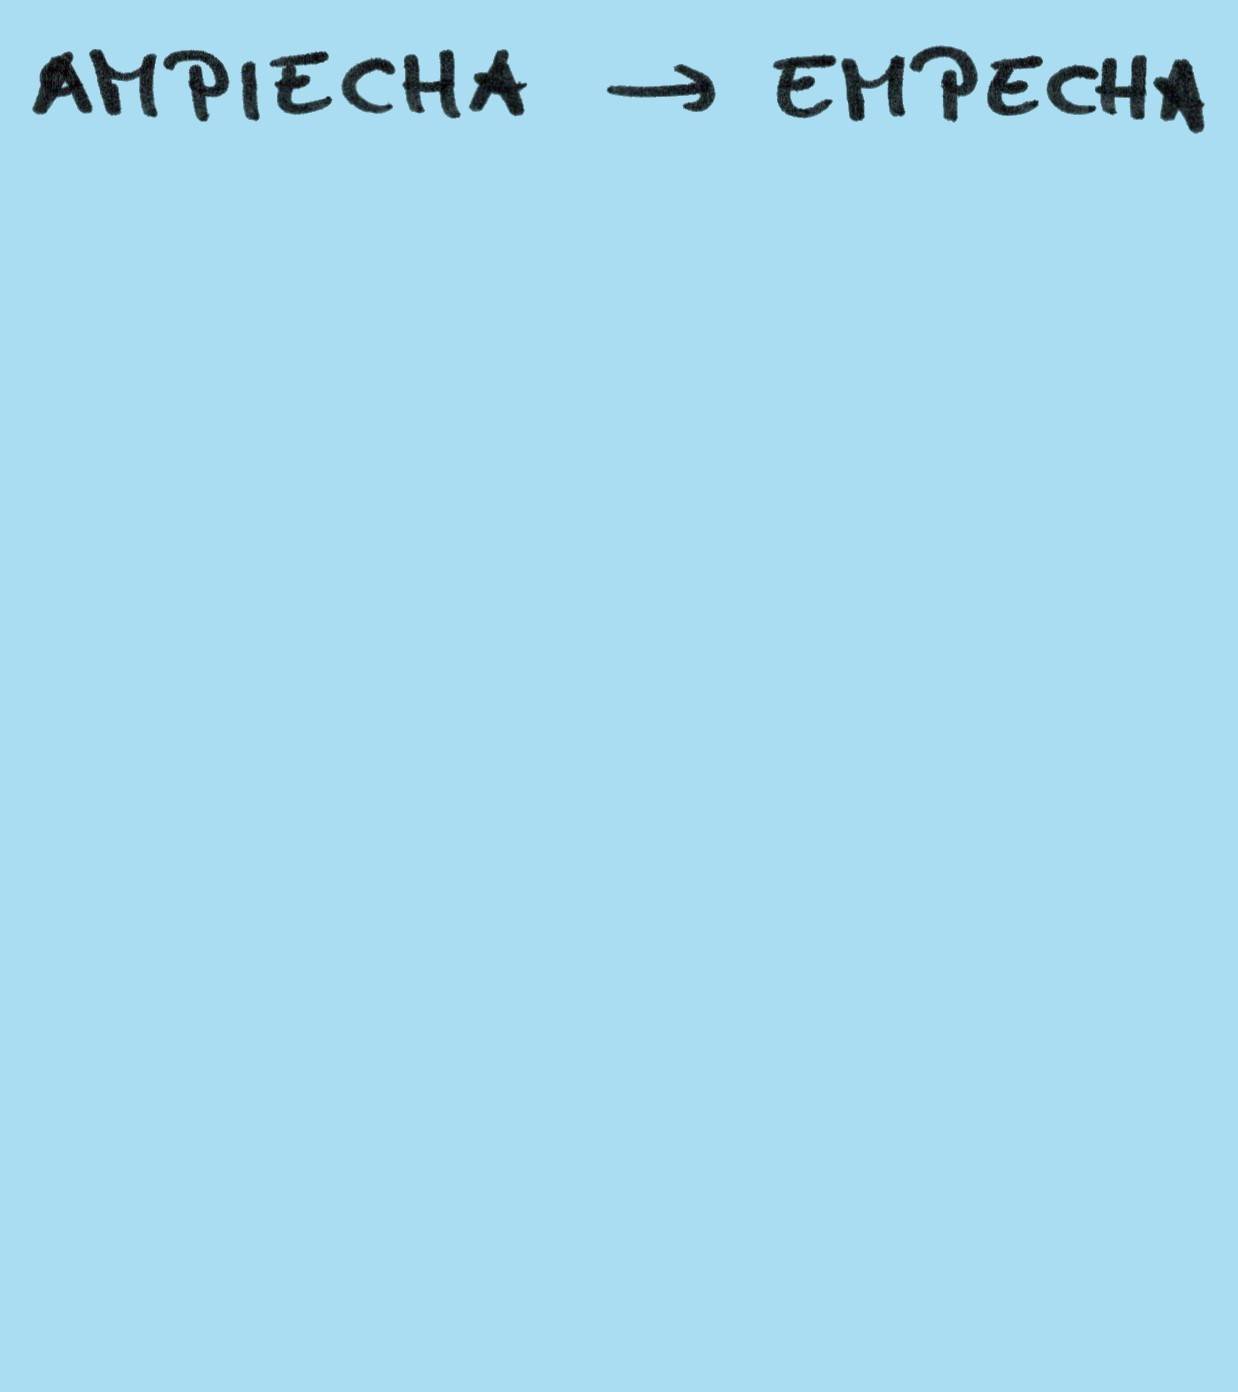 AMPIECHA → EMPECHA